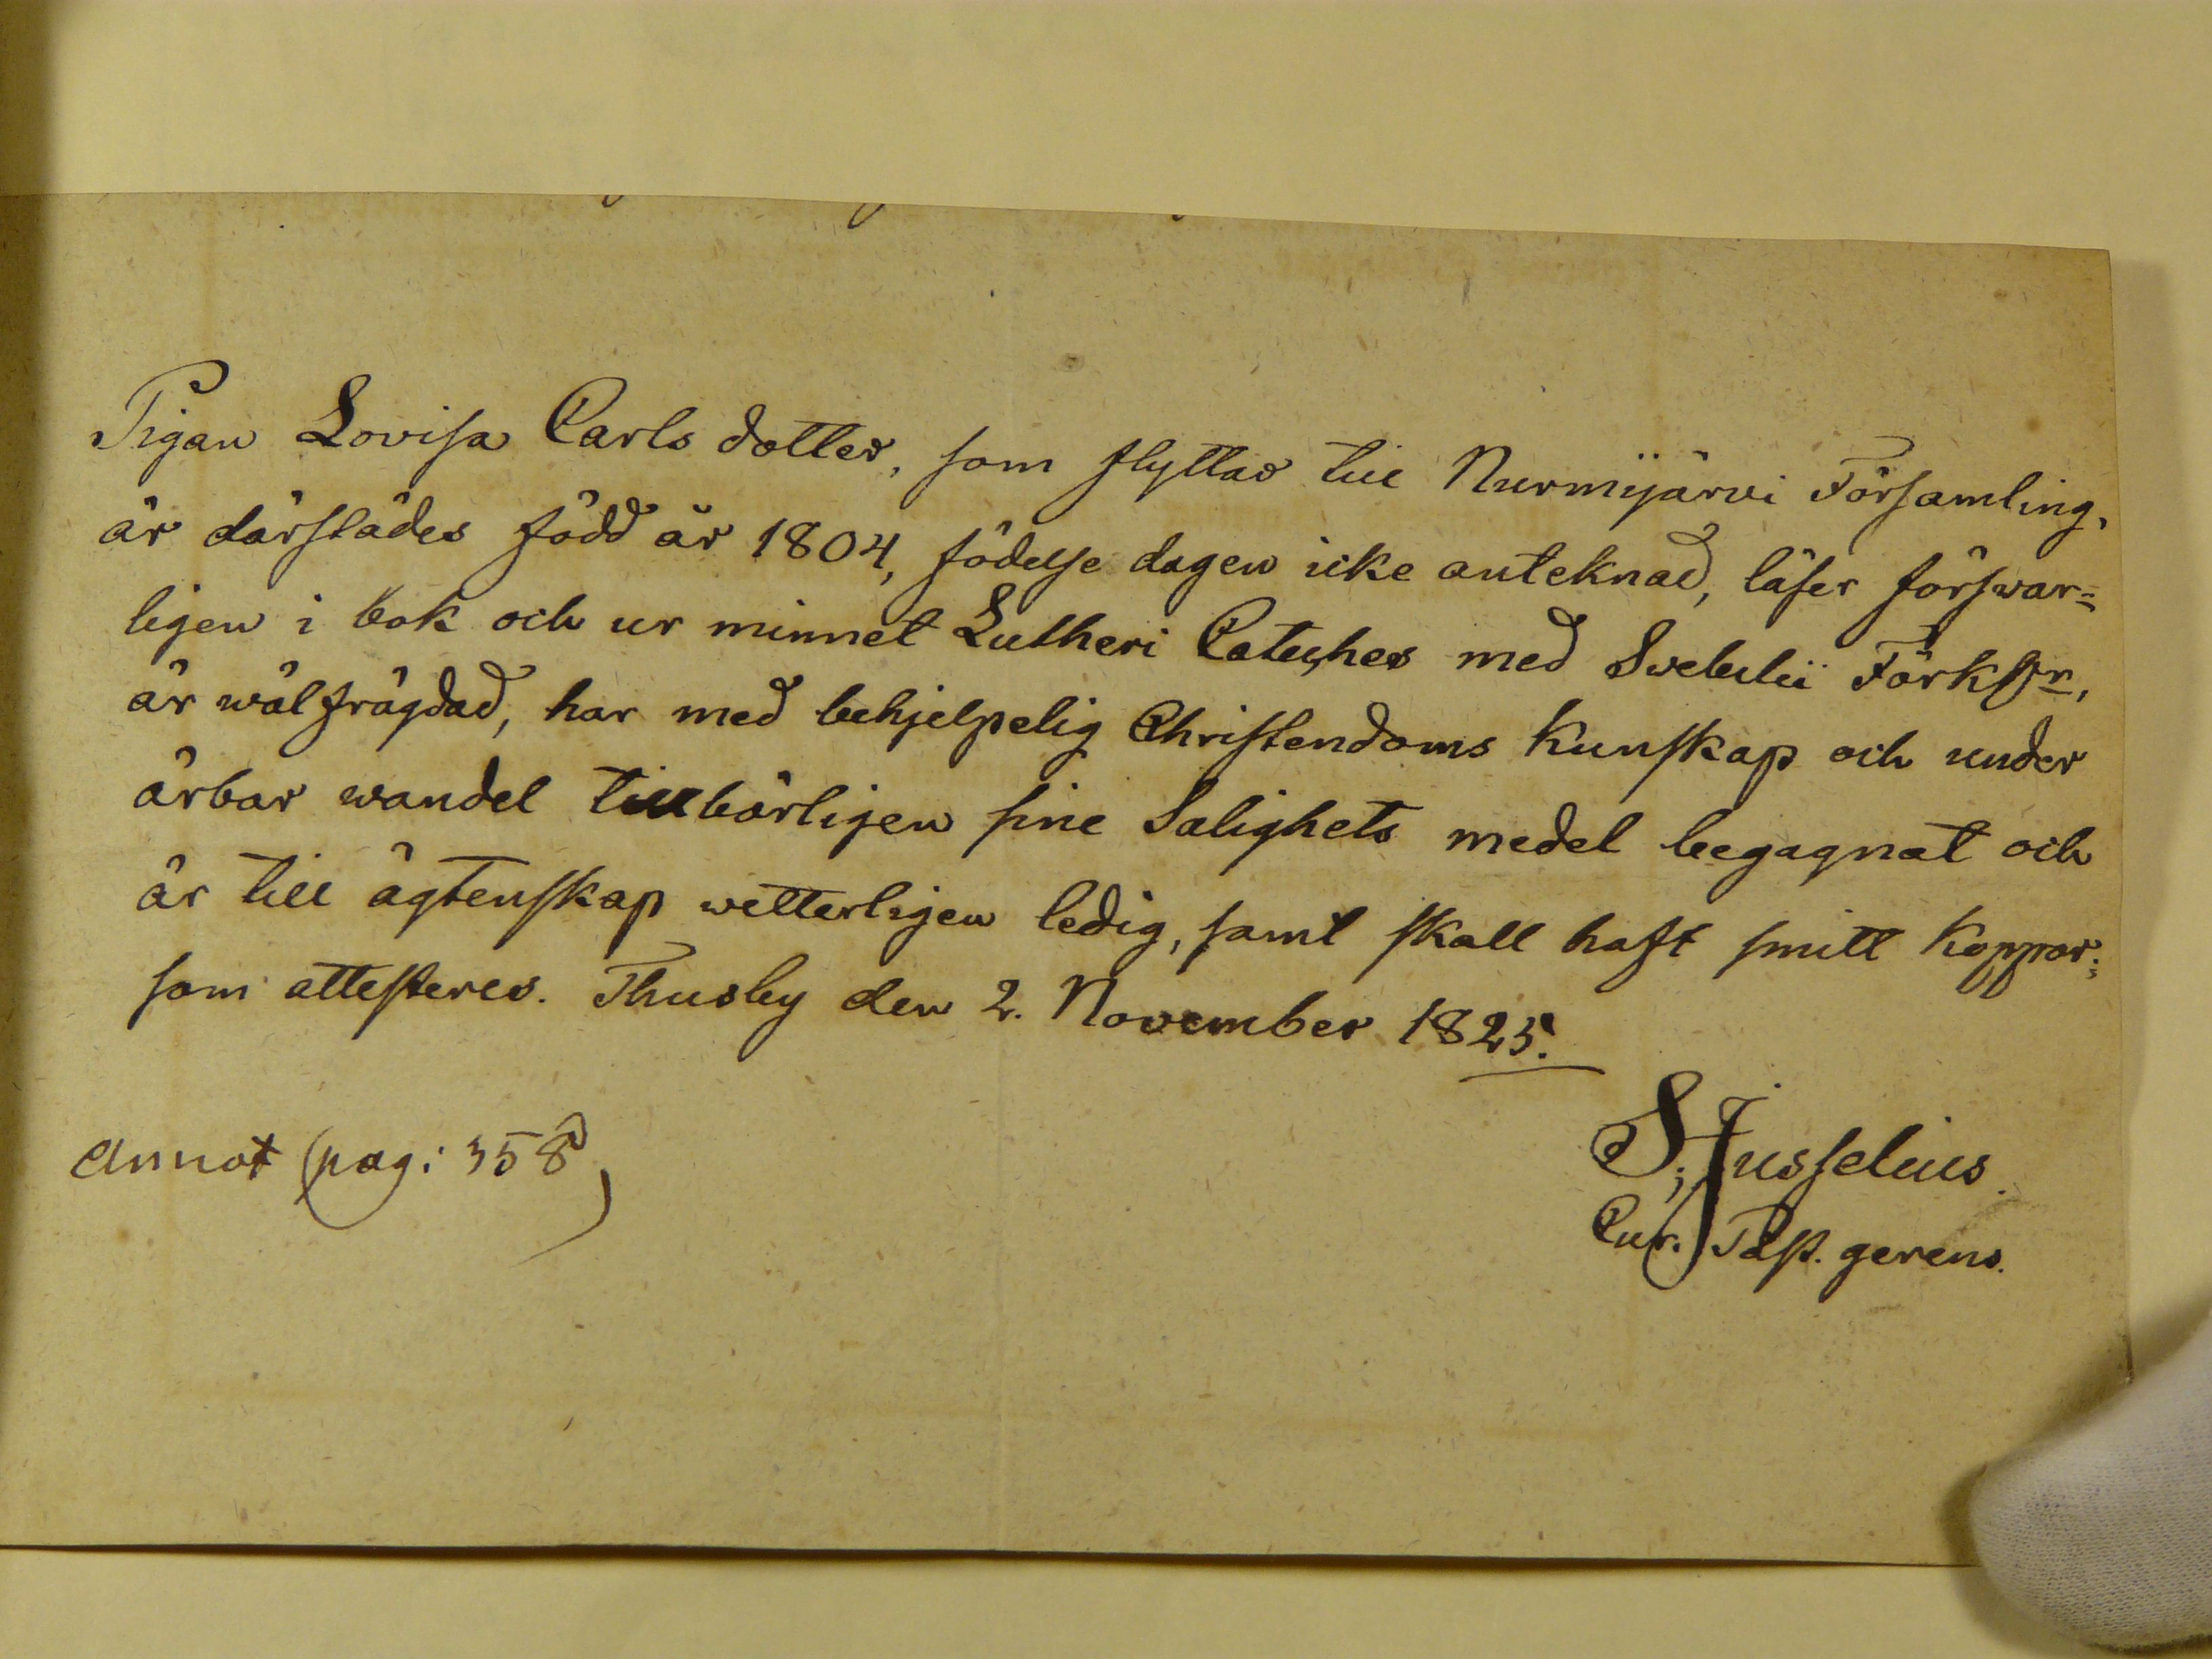 Pigan Lovisa Carls dotter, som flyttar till Nurmijärvi Församling,
är därstädes född år 1804, födelse dagen icke anteknad, läser förswar=
ligen i bok och ur minnet Lutheri Cateches med Swebelii Förkl:gn,
är wälfrägdad, har med behjelpelig Christendoms kunskap och under
ärbar wandel tillbörligen sine Salighets medel begagnat och
är till ägtenskap wetterligen ledig, samt skall haft smitt koppor;
som attesteres. Thusby den 2. November 1825.
S. Jusselius.
Cur. Past. gerens.
Annot pag: 358